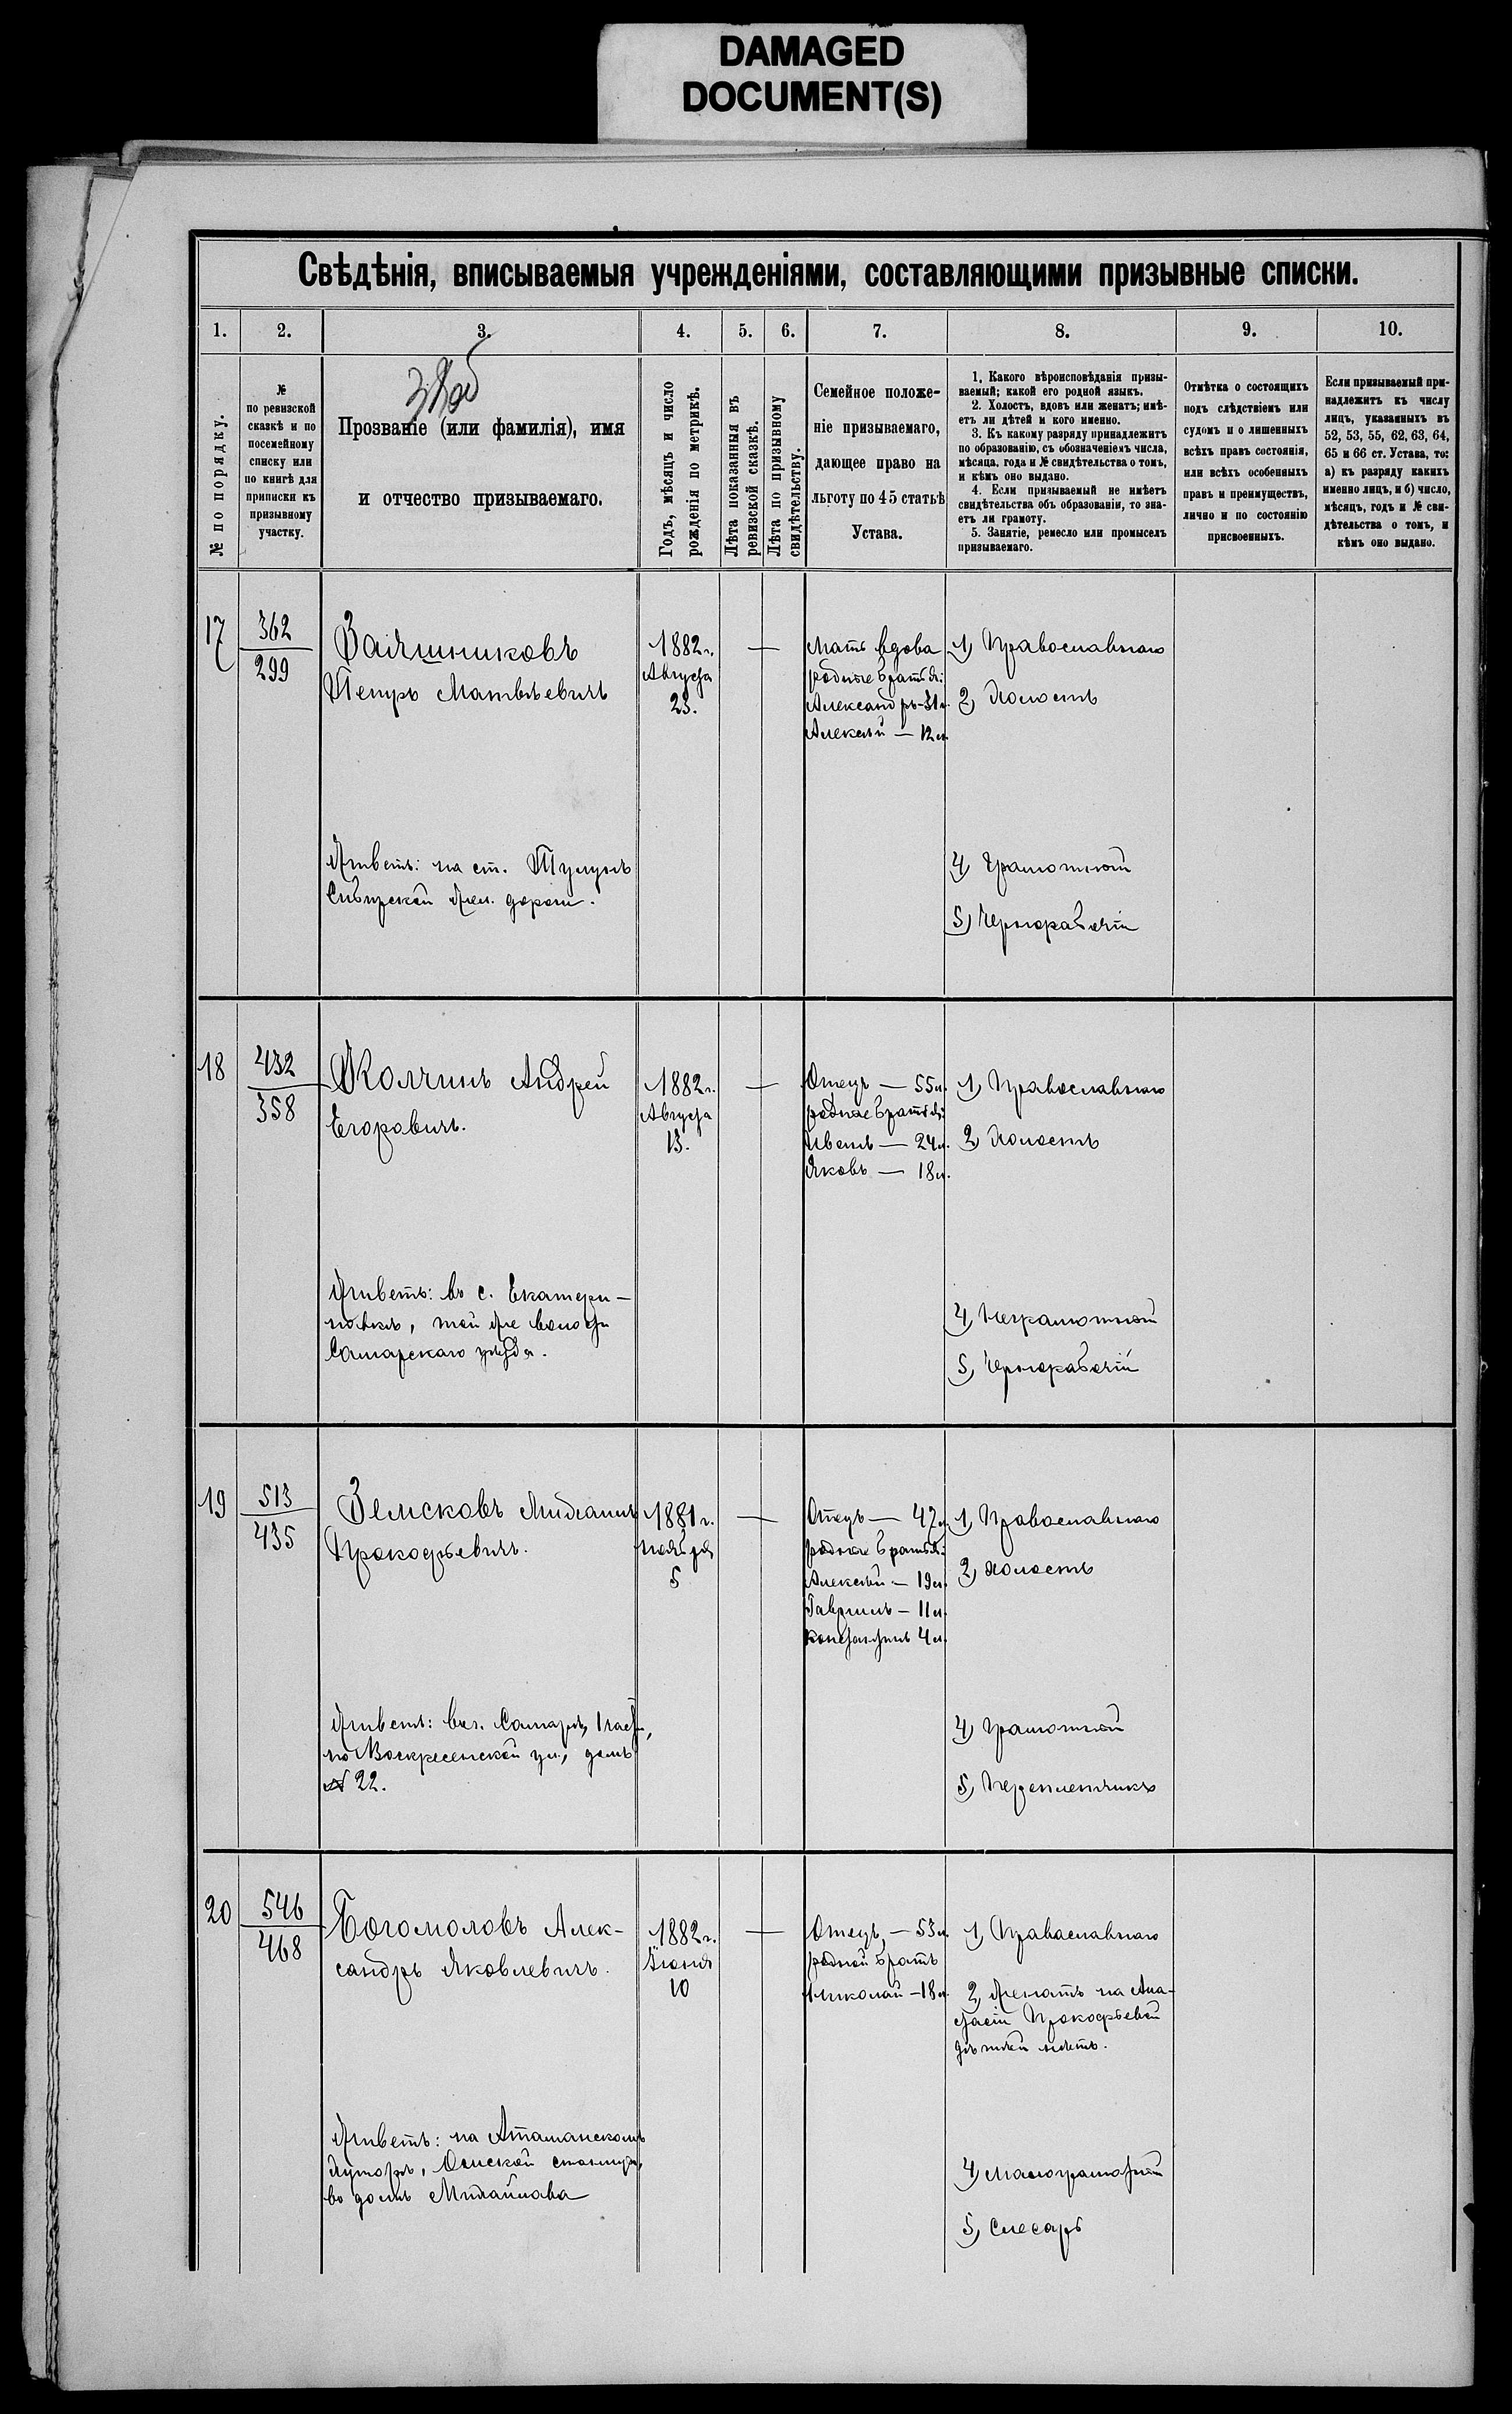 DAMAGED
DOCUMENT(S)
Свѣдѣнія, вписываемыя учрежденіями, составляющими призывные списки.
1. 2. 3. 4. 5. 6. 7. 8. 9. 10.
№ по порядку.
№
по ревизской
сказкѣ и по
посемейному
списку или
по книгѣ для
приписки къ
призывному
участку.
Прозваніе (или фамилія), имя
и отчество призываемаго.
Годъ, мѣсяцъ и число
рожденія по метрикѣ.
Лѣта показанныя въ
ревизской сказкѣ.
Лѣта по призывному
свидѣтельству.
Семейное положе-
ніе призываемаго,
дающее право на
льготу по 45 статьѣ
Устава.
1. Какого вѣроисповѣданія призы-
ваемый; какой его родной языкъ.
2. Холостъ, вдовъ или женатъ; имѣ-
етъ ли дѣтей и кого именно.
3. Къ какому разряду принадлежитъ
по образованію, съ обозначеніемъ числа,
мѣсяца, года и № свидѣтельства о томъ,
и кѣмъ оно выдано.
4. Если призываемый не имѣетъ
свидѣтельства объ образованіи, то зна-
етъ ли грамоту.
5. Занятіе, ремесло или промыселъ
призываемаго.
Отмѣтка о состоящихъ
подъ слѣдствіемъ или
судомъ и о лишенныхъ
всѣхъ правъ состоянія,
или всѣхъ особенныхъ
правъ и преимуществъ,
лично и по состоянію
присвоенныхъ.
Если призываемый при-
надлежитъ къ числу
лицъ, указанныхъ въ
52, 53, 55, 62, 63, 64,
65 и 66 ст. Устава, то:
а) къ разряду какихъ
именно лицъ, и б) число,
мѣсяцъ, годъ и № сви-
дѣтельства о томъ, и
кѣмъ оно выдано.
17
362
299
Петръ Матвѣевичъ
1882 г.
Августа
23.
—
Мать вдова
родные братья:
Александръ-31 л.
Алексѣй — 12 л.
1) Православнаго
2) Холостъ
Живетъ: на ст. Тулунъ
Сибирской жел. дороги.
4) Грамотной
5) Чернорабочій
18
432
358
Колчинъ Андрей
Егоровичъ.
1882 г.
Августа
13.
—
Отецъ — 55 л.
родные братья:
Иванъ — 24 л.
Яковъ — 18 л.
1) Православнаго
2) Холостъ
Живетъ: въ с. Екатери-
новкѣ, той же волости
Самарскаго уѣзда.
4) Неграмотной
5) Чернорабочій
19
513
435
Земсковъ Михаилъ
Прокофьевичъ.
1881 г.
Ноября
5
—
Отецъ — 47 л.
родные братья:
Алексѣй — 19 л.
Гаврiилъ — 11 л.
Константинъ 4 л.
1) Православнаго
2) Холостъ
Живетъ: въ г. Самарѣ, 1 части,
по Воскресенской ул., домъ
№ 22.
4) Грамотной
5) Переплетчикъ
20
546
468
Богомоловъ Алек-
сандръ Яковлевичъ.
1882 г.
Іюня
10
—
Отецъ — 53 л.
родной братъ
Николай — 18 л.
1) Православнаго
2) Женатъ на Ана-
стасіи Прокофьевой
дѣтей нѣтъ.
Живетъ: на Атаманскомъ
хуторѣ, Омской станицы,
въ домѣ Михайлова
4) Малограмотной
5) Слесарь